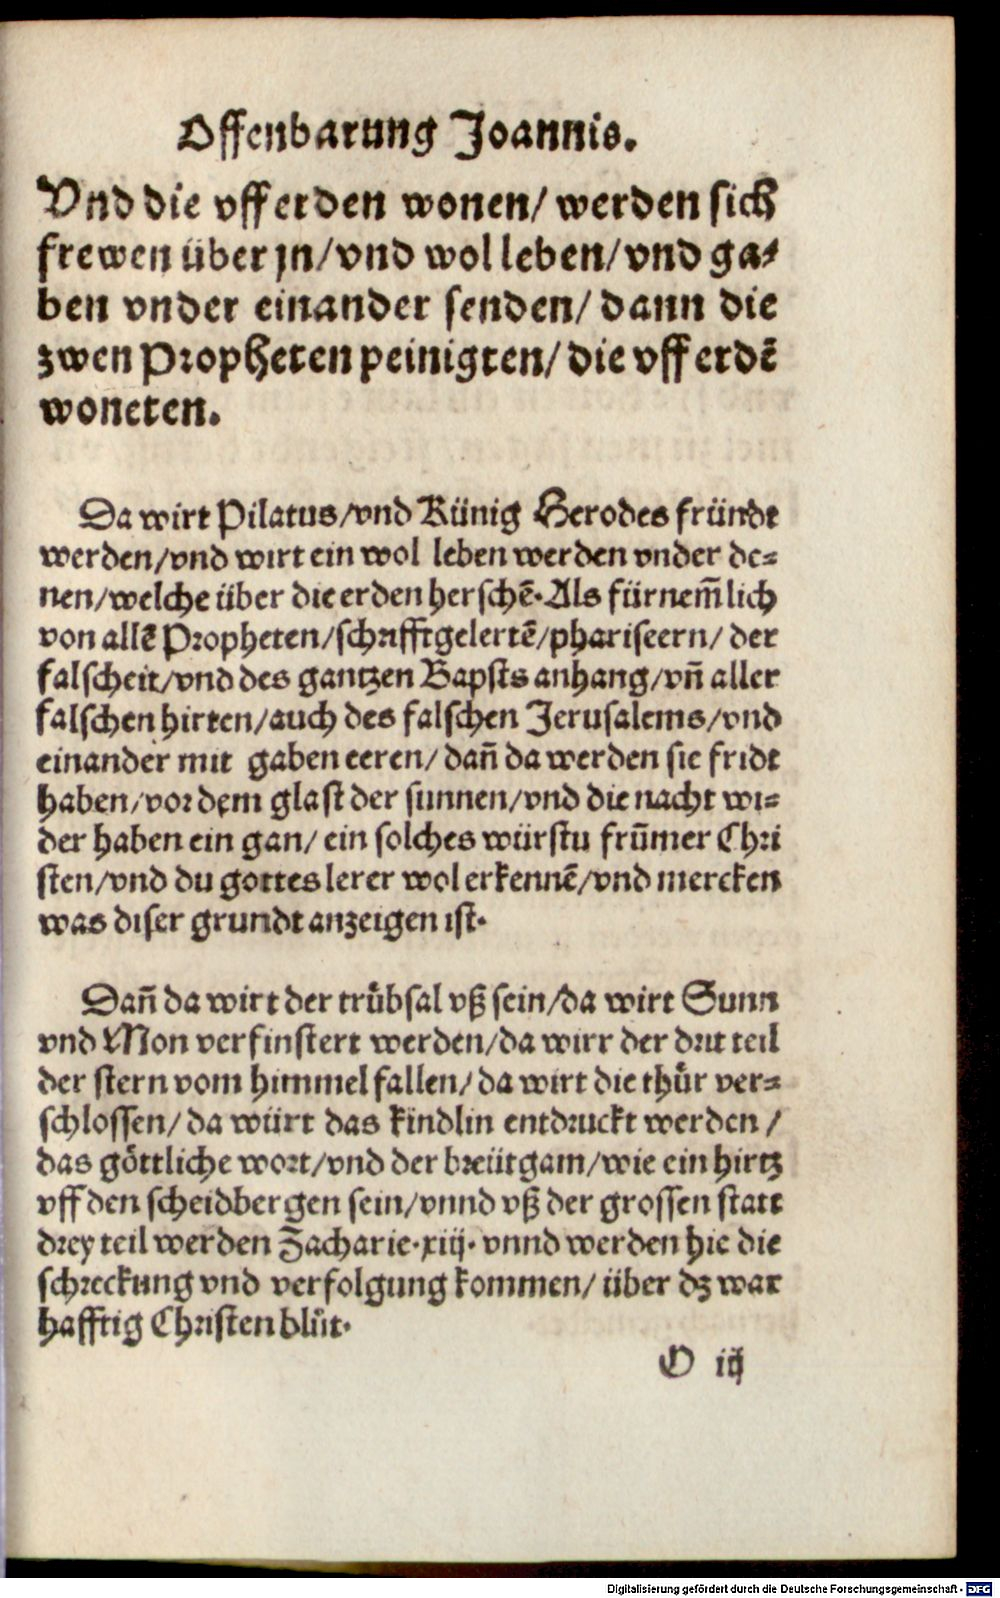 Offenbarung Joannis.
Vnd die vff erden wonen/ werden sich
frewen über jn/ vnd wol leben/ vnd ga⸗
ben vnder einander senden/ dann die
zwen Propheten peinigten/ die vff erdē
woneten.
Da wirt Pilatus/ vnd Künig Herodes fründt
werden/ vnd wirt ein wol leben werden vnder de⸗
nen/ welche über die erden herschē. Als fürnem̄lich
von allē Propheten/ schrifftgelertē/ phariseern/ der
falscheit/ vnd des gantzen Bapsts anhang/ vn̄ aller
falschen hirten/ auch des falschen Jerusalems/ vnd
einander mit gaben eeren/ dan̄ da werden sie fridt
haben/ vor dem glast der sunnen/ vnd die nacht wi⸗
der haben ein gan/ ein solches würstu frūmer Chri
sten/ vnd du gottes lerer wol erkennē/ vnd mercken
was diser grundt anzeigen ist.
Dan̄ da wirt der trůbsal vß sein/ da wirt Sunn
vnd Mon verfinstert werden/ da wirr der drit teil
der stern vom himmel fallen/ da wirt die thůr ver⸗
schlossen/ da würt das kindlin entdruckt werden/
das göttliche wort/ vnd der breütgam/ wie ein hirtz
vff den scheidbergen sein/ vnnd vß der grossen statt
drey teil werden Zacharie. xiij. vnnd werden hie die
schreckung vnd verfolgung kommen/ über dz war
hafftig Christen blůt.
O iij
Digitalisierung gefördert durch die Deutsche Forschungsgemeinschaft - DFG